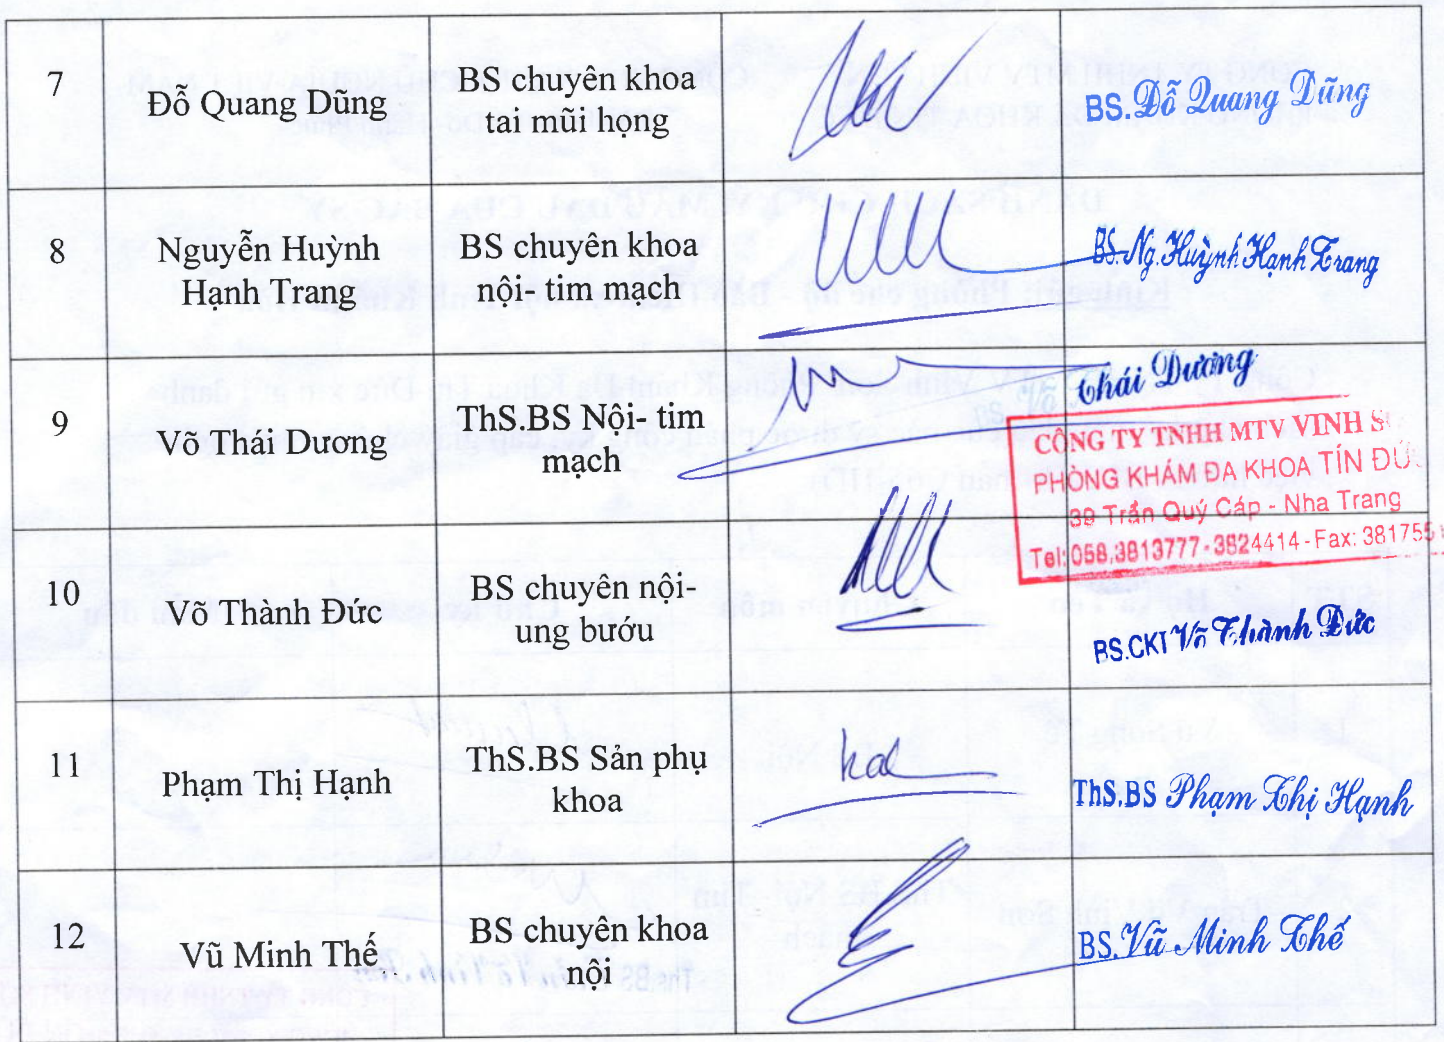 7
Đỗ Quang Dũng
BS chuyên khoa
tai mũi họng
BS. Đỗ Quang Dũng
8
Nguyễn Huỳnh
Hạnh Trang
BS chuyên khoa
nội- tim mạch
BS. Ng. Huỳnh Hạnh Trang
9
Võ Thái Dương
ThS.BS Nội- tim
mạch
Thái Dương
CÔNG TY TNHH MTV VINH
PHÒNG KHÁM ĐA KHOA TÍN
39 Trần Quý Cáp - Nha Trang
Tel: 058.3813777 - 3824414 - Fax: 381755
10
Võ Thành Đức
BS chuyên nội-
ung bướu
BS.CKI Võ Thành Đức
11
Phạm Thị Hạnh
ThS.BS Sản phụ
khoa
ThS.BS Phạm Thị Hạnh
12
Vũ Minh Thế
BS chuyên khoa
nội
BS. Vũ Minh Thế